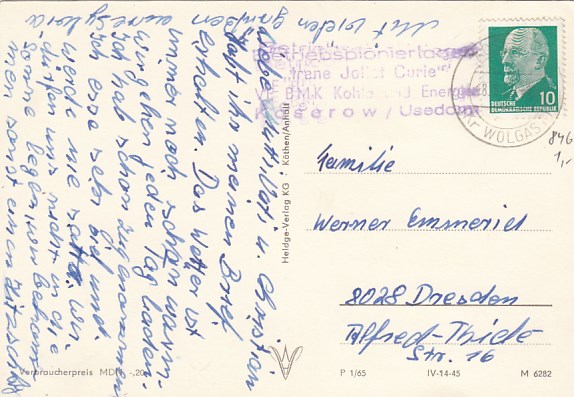 Liebe Mutti, Vati u. Christian
Habt ihr meinen Brief
erhalten. Das Wetter ist
immer noch schön warm
wir gehen jeden Tag baden.
Ich hab schon zugenommen
ich esse sehr viel und
werd nie satt. Wir
dürfen uns nicht in die
Sonne legen wir bekom
men sonst einen Hitzschlag
Mit vielen Grüßen
eure Sylvia
Betriebspionierlager
"Irene Joliot Curie"
VE BMK Kohle und Energie
Koserow / Usedom
WOLGAST
10
DEUTSCHE
DEMOKRATISCHE REPUBLIK
846
1,-
Familie
Werner Emmerich
8028 Dresden
Alfred-Thiele-
Str. 16
Heldge-Verlag KG Köthen/Anhalt
Verbraucherpreis MDN -,20
P 1/65 IV-14-45 M 6282